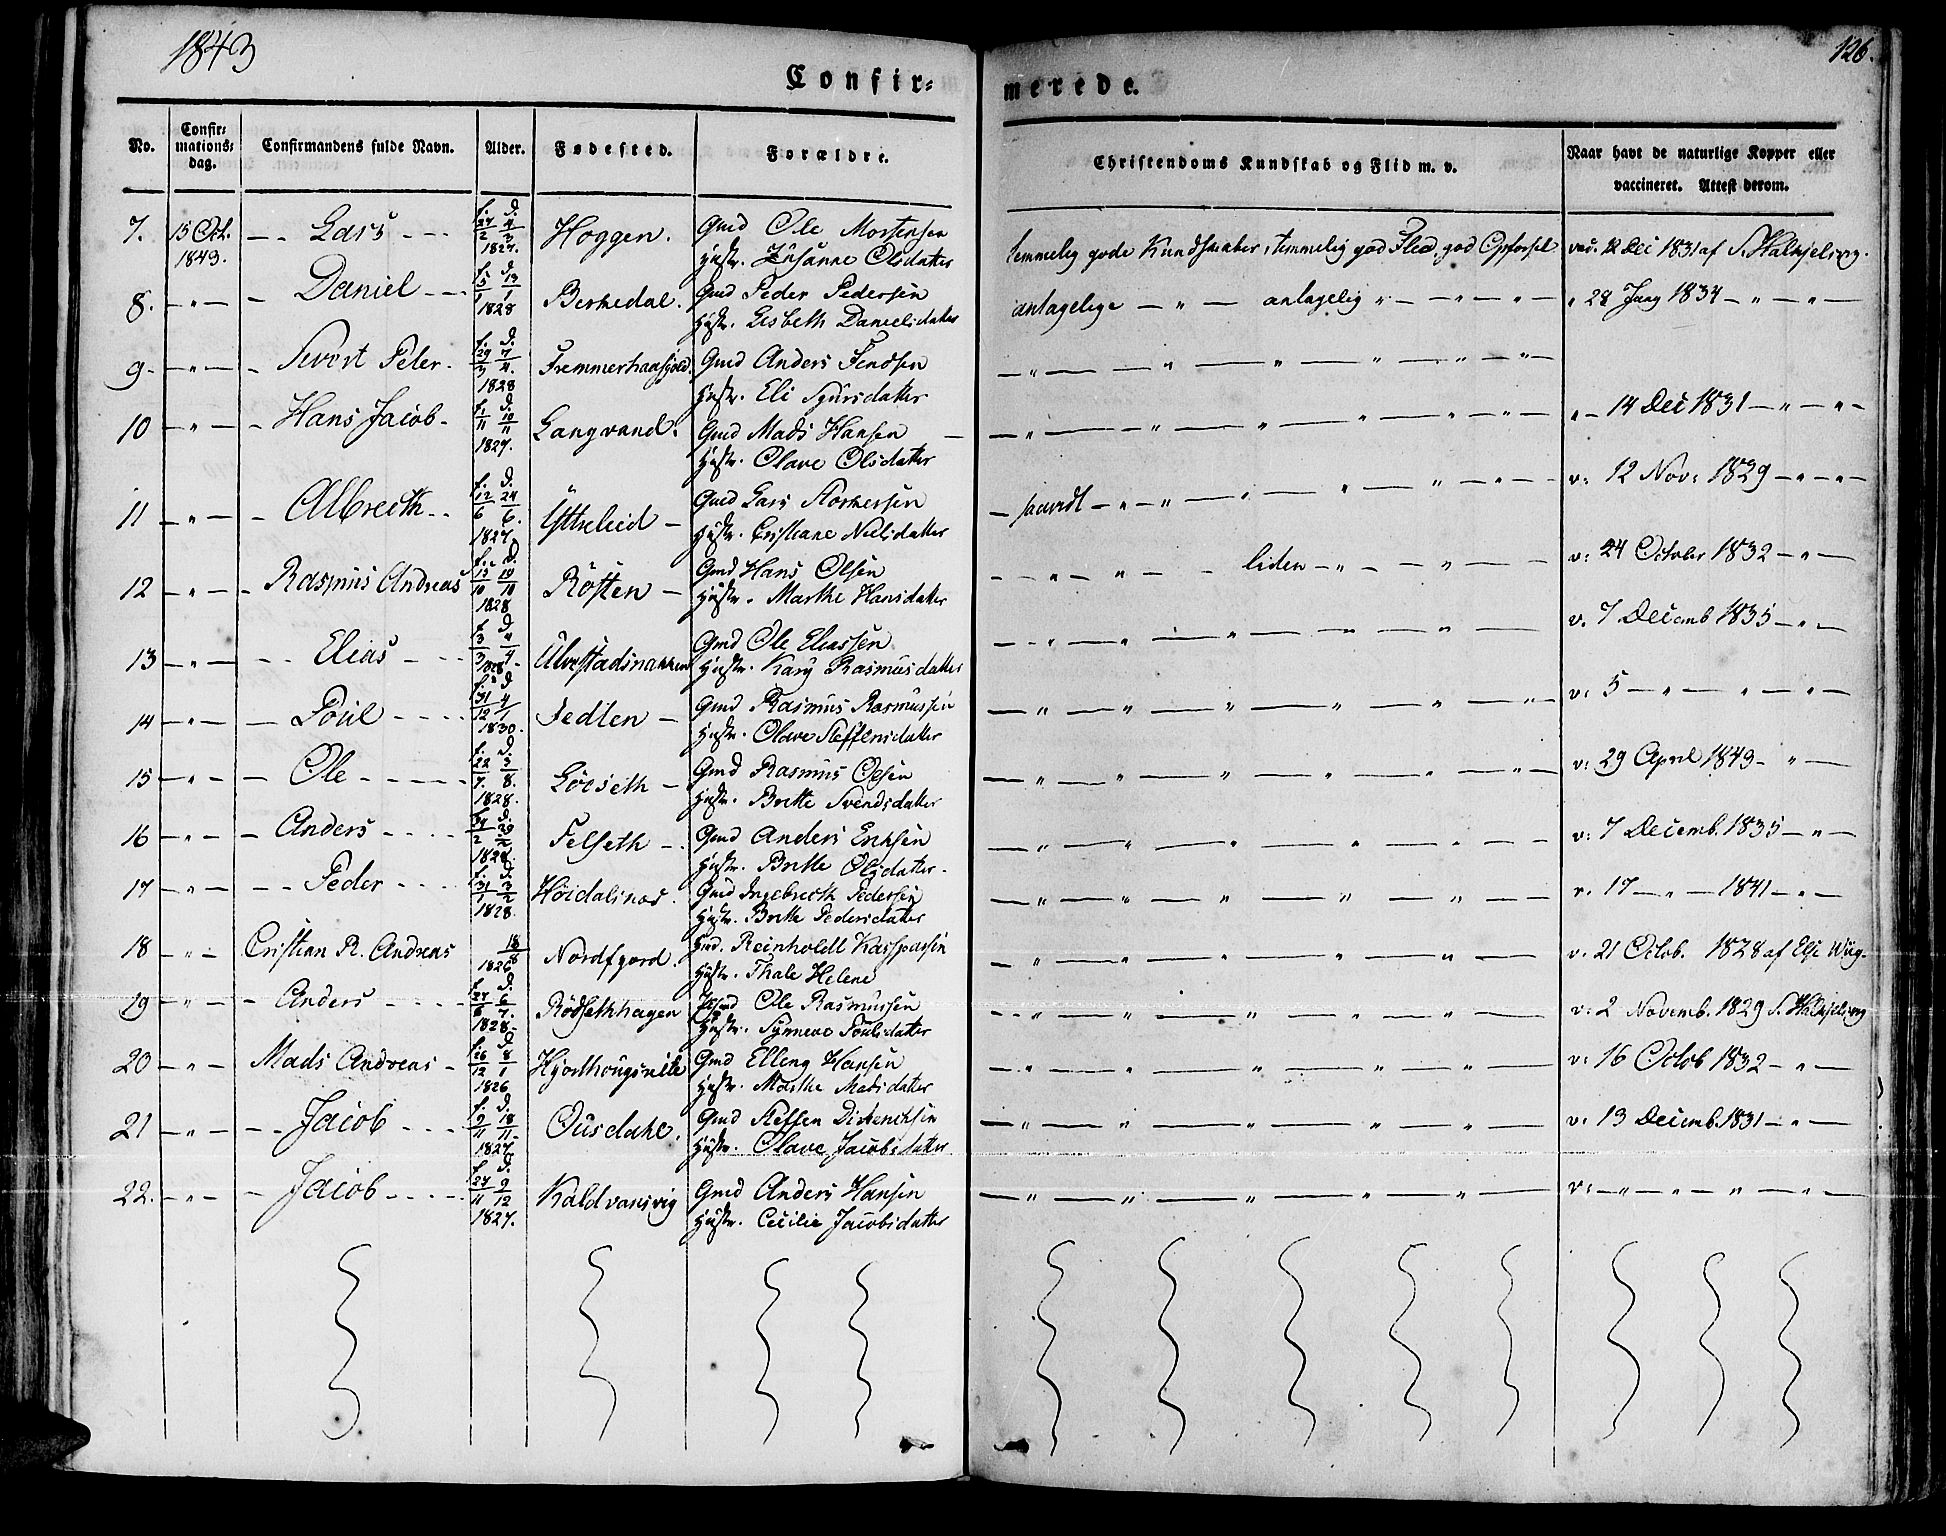 1843
126.
Confir=
merede.
No.
Confir=
mations=
dag.
Confirmandens fulde Navn.
Alder.
Fødested.
Forældre.
Christendoms Kundskab og Flid m. v.
Naar havt de naturlige Kopper eller
vaccineret. Attest derom.
7. 15 Oct. 1843. Lars f. 27/2 d. 4/3 1827. Hoggen. Gmd Ole Mortensen
Hustr. Susanne Olsdatter
temmelig gode Kundskaber, temmelig god Flid, god Opførsel vac. 12 Dec 1831 af S. Halkjelsvig.
8. " Daniel f. 5/1 d. 13/1 1828 Berkedal. Gmd Peder Pedersen
Hustr. Lisbeth Danielsdatter
antagelige — " — antagelig " — " — " — " 28 Jany 1834 — " — " —
9. " Sivert Peter f. 29/3 d. 7/4. 1828 Gmd Anders
Hustr. Eli Sjursdatter
10 " Hans Jacob f. 1/11 d. 10/11 1827. Langvand. Gmd Mads Hansen
Hustr. Olave Olsdatter
" 14 Dec 1831 — " — " —
11 " Albrecth f. 12/6 d. 24/6. 1827 Yttrelied Gmd Lars
Hustr. Cristiane Nielsdatter
v: 12 Nov: 1829 — " — " —
12 " Rasmus Andreas f. 13/10 d. 19/10 1828 Røsten Gmd Hans Olsen
Hustr. Marthe Hansdatter
liden — " — v: 24 October 1832 — " —
13 " Elias f. 3/3 d. 4/4 1828 Ulvestadsnakken Gmd Ole Eliassen
Hustr. Kary Rasmusdatter
v. 7 Decemb 1835 — " —
14 " Poul f. 31/12 d. 4/1 1830. Gmd Rasmus Rasmussen
Hustr. Olave Steffensdatter
v: 5 — " — " — " —
15 " Ole f. 22/7. d. 3/8. 1828. Løvseth Gmd Rasmus Olsen
Hustr. Britte Svendsdatter
v: 29 April 1843 — " —
16 " Anders Felseth Gmd Anders Eriksen
Hustr. Britte Olsdatter
v: 7 Decemb. 1835 — " —
17 " Peder f. 31/1 d. 3/2 1828. Høidalsnæs. Gmd Ingebrecth Pedersen
Hustr. Britte Pedersdatter
v. 17 — " — 1841 — " —
18 " Cristian R. Andreas 18/8 1826 Nordfjord. Reinholdt Kaspersen
Hustr. Thale Helene
v. 21 Octob. 1828 af Else
19 " Anders f. 27/6 d. 6/7. 1828. Rødsethhagen Ole Rasmussen
Hustr. Synneve Poulsdatter
v: 2 Novemb. 1829 S. Halkjelsvig
20 " Mads Andreas f. 26/12 d. 8/1 1826 Gmd Elling Hansen
Hustr. Marthe Madsdatter
v: 16 Octob 1832 — " —
21 " Jacob f. 9/11 d. 18/11. 1827. Ousdahl. Gmd Steffen
Hustr. Olave Jacobsdatter
v: 13 Decemb. 1831 — " —
22. " Jacob f. 27/11 d. 9/12 1827. Kaldvansvig Gmd Anders Hansen
Hustr. Cecilie Jacobsdatter
v: — " — " — " — " —